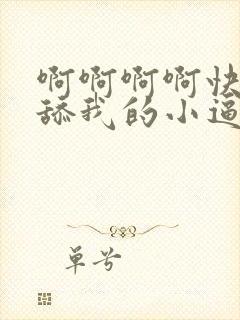 啊啊啊啊快
舔我的小逼
单号